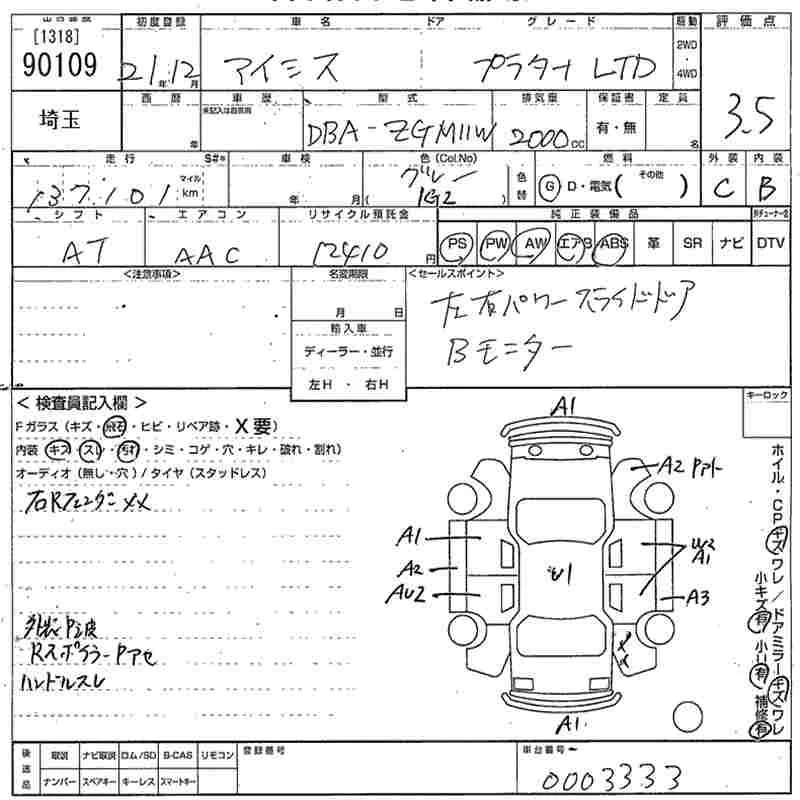 [1318]
90109
初度登録 車名 ドア グレード 駆動 評価点
21年12月 アイシス プラタナ LTD 2WD・4WD 3.5
埼玉
西暦 車歴 型式 排気量 保証書 定員
※記入は自家用
年 DBA-ZGM11W 2000cc 有・無 名
走行 S#* 車検 色(Col.No) 色替 燃料 外装 内装
137,101 マイル km 年 月 グレー ( 1G2 ) G D・電気( その他 ) C B
シフト エアコン リサイクル預託金 純正装備品
AT AAC 12410円 PS PW AW エアB ABS 革 SR ナビ DTV
<注意事項> 名変期限 <セールスポイント>
月 日 左右パワースライドドア
輸入車 Bモニター
ディーラー・並行
左H・右H
<検査員記入欄> キーロック
Fガラス(キズ・飛石・ヒビ・リペア跡・X要)
内装(キズ・スレ・汚れ・シミ・コゲ・穴・キレ・破れ・割れ)
オーディオ(無し・穴)/タイヤ(スタッドレス)
右Rフェンダー XX
A1
A2
A1
A2
AU2
W2
A1
A3
U1
XX
A1
ホイル・CPキズワレ/ドアミラーキズワレ
小キズ有 小凹有 補修有
RスポイラーPアセ
ハンドルスレ
後送品 取説 ナビ取説 ロム/SD B-CAS リモコン 登録番号 車台番号
ナンバー スペアキー キーレス スマートキー 0003333